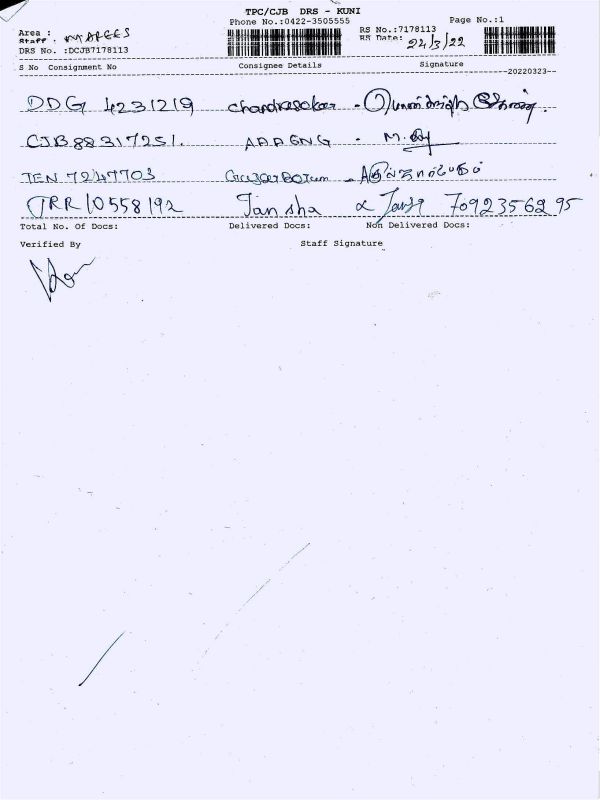 TPC/CJB DRS - KUNI
Phone No.:0422-3505555 Page No.:1
Area : RS No.:7178113
Staff : MARGES RS Date: 24/3/22
DRS No. :DCJB7178113
S No Consignment No Consignee Details Signature
20220323
DDG 4231219 chandrasekar -
CJB88317251. AAAGNG - M.
TEN 7247703 -
TRR 10558192 Jansha & 7092356295
Total No. Of Docs: Delivered Docs: Non Delivered Docs:
Verified By Staff Signature